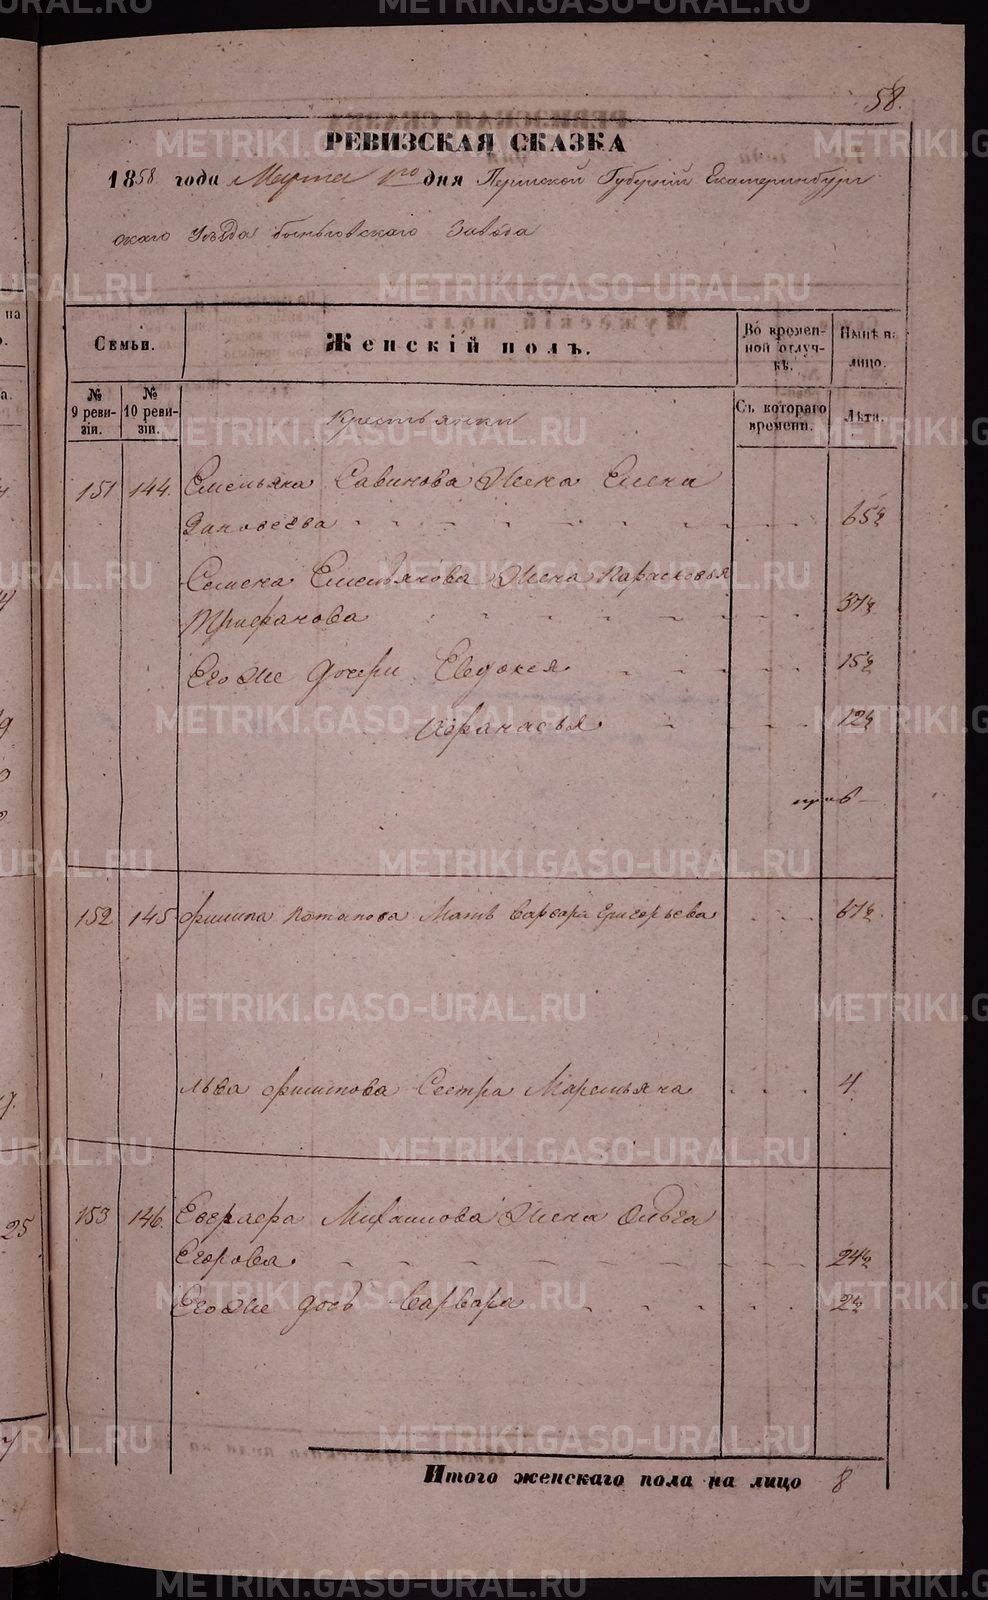 58.
РЕВИЗСКАЯ СКАЗКА
1858 года Марта 1го дня Пермской Губерніи Екатеринбург
скаго Уѣзда Быньговскаго Завода
Семьи.
Женскій полъ.
Во времен-
ной отлуч-
кѣ.
Нынѣ на
лицо.
№
9 реви-
зіи.
№
10 реви-
зіи.
Крестьянки
Съ котораго
времени.
Лѣта.
151 144. Емельяна Савинова Жена Елена
65
Семена Емельянова Жена Парасковья
Трифанова 37
Его же дочери Евдокея 15
Афанасья 12
152 145 Филипа Потапова Мать Варвара Григорьева 67
Льва Филипова Сестра Маремьяна 4
153 146. Евграфа Михаилова Жена Ольга
Егорова 24
Его же дочь Варвара 2
Итого женскаго пола на лицо 8
METRIKI.GASO-URAL.RU